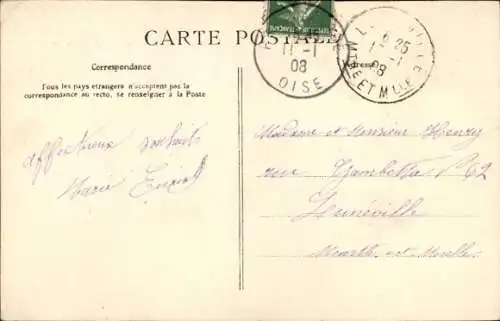 CARTE POSTALE
11 -1
08
OISE
8 25
1 -1
08
MTHE ET MLLE
Correspondance
Adresse
Tous les pays étrangers n'acceptent pas la
correspondance au recto, se renseigner à la Poste
affectueux souhaits
Marie
Madame et Monsieur Henry
rue Gambetta N° 62
Lunéville
Meurthe-et-Moselle